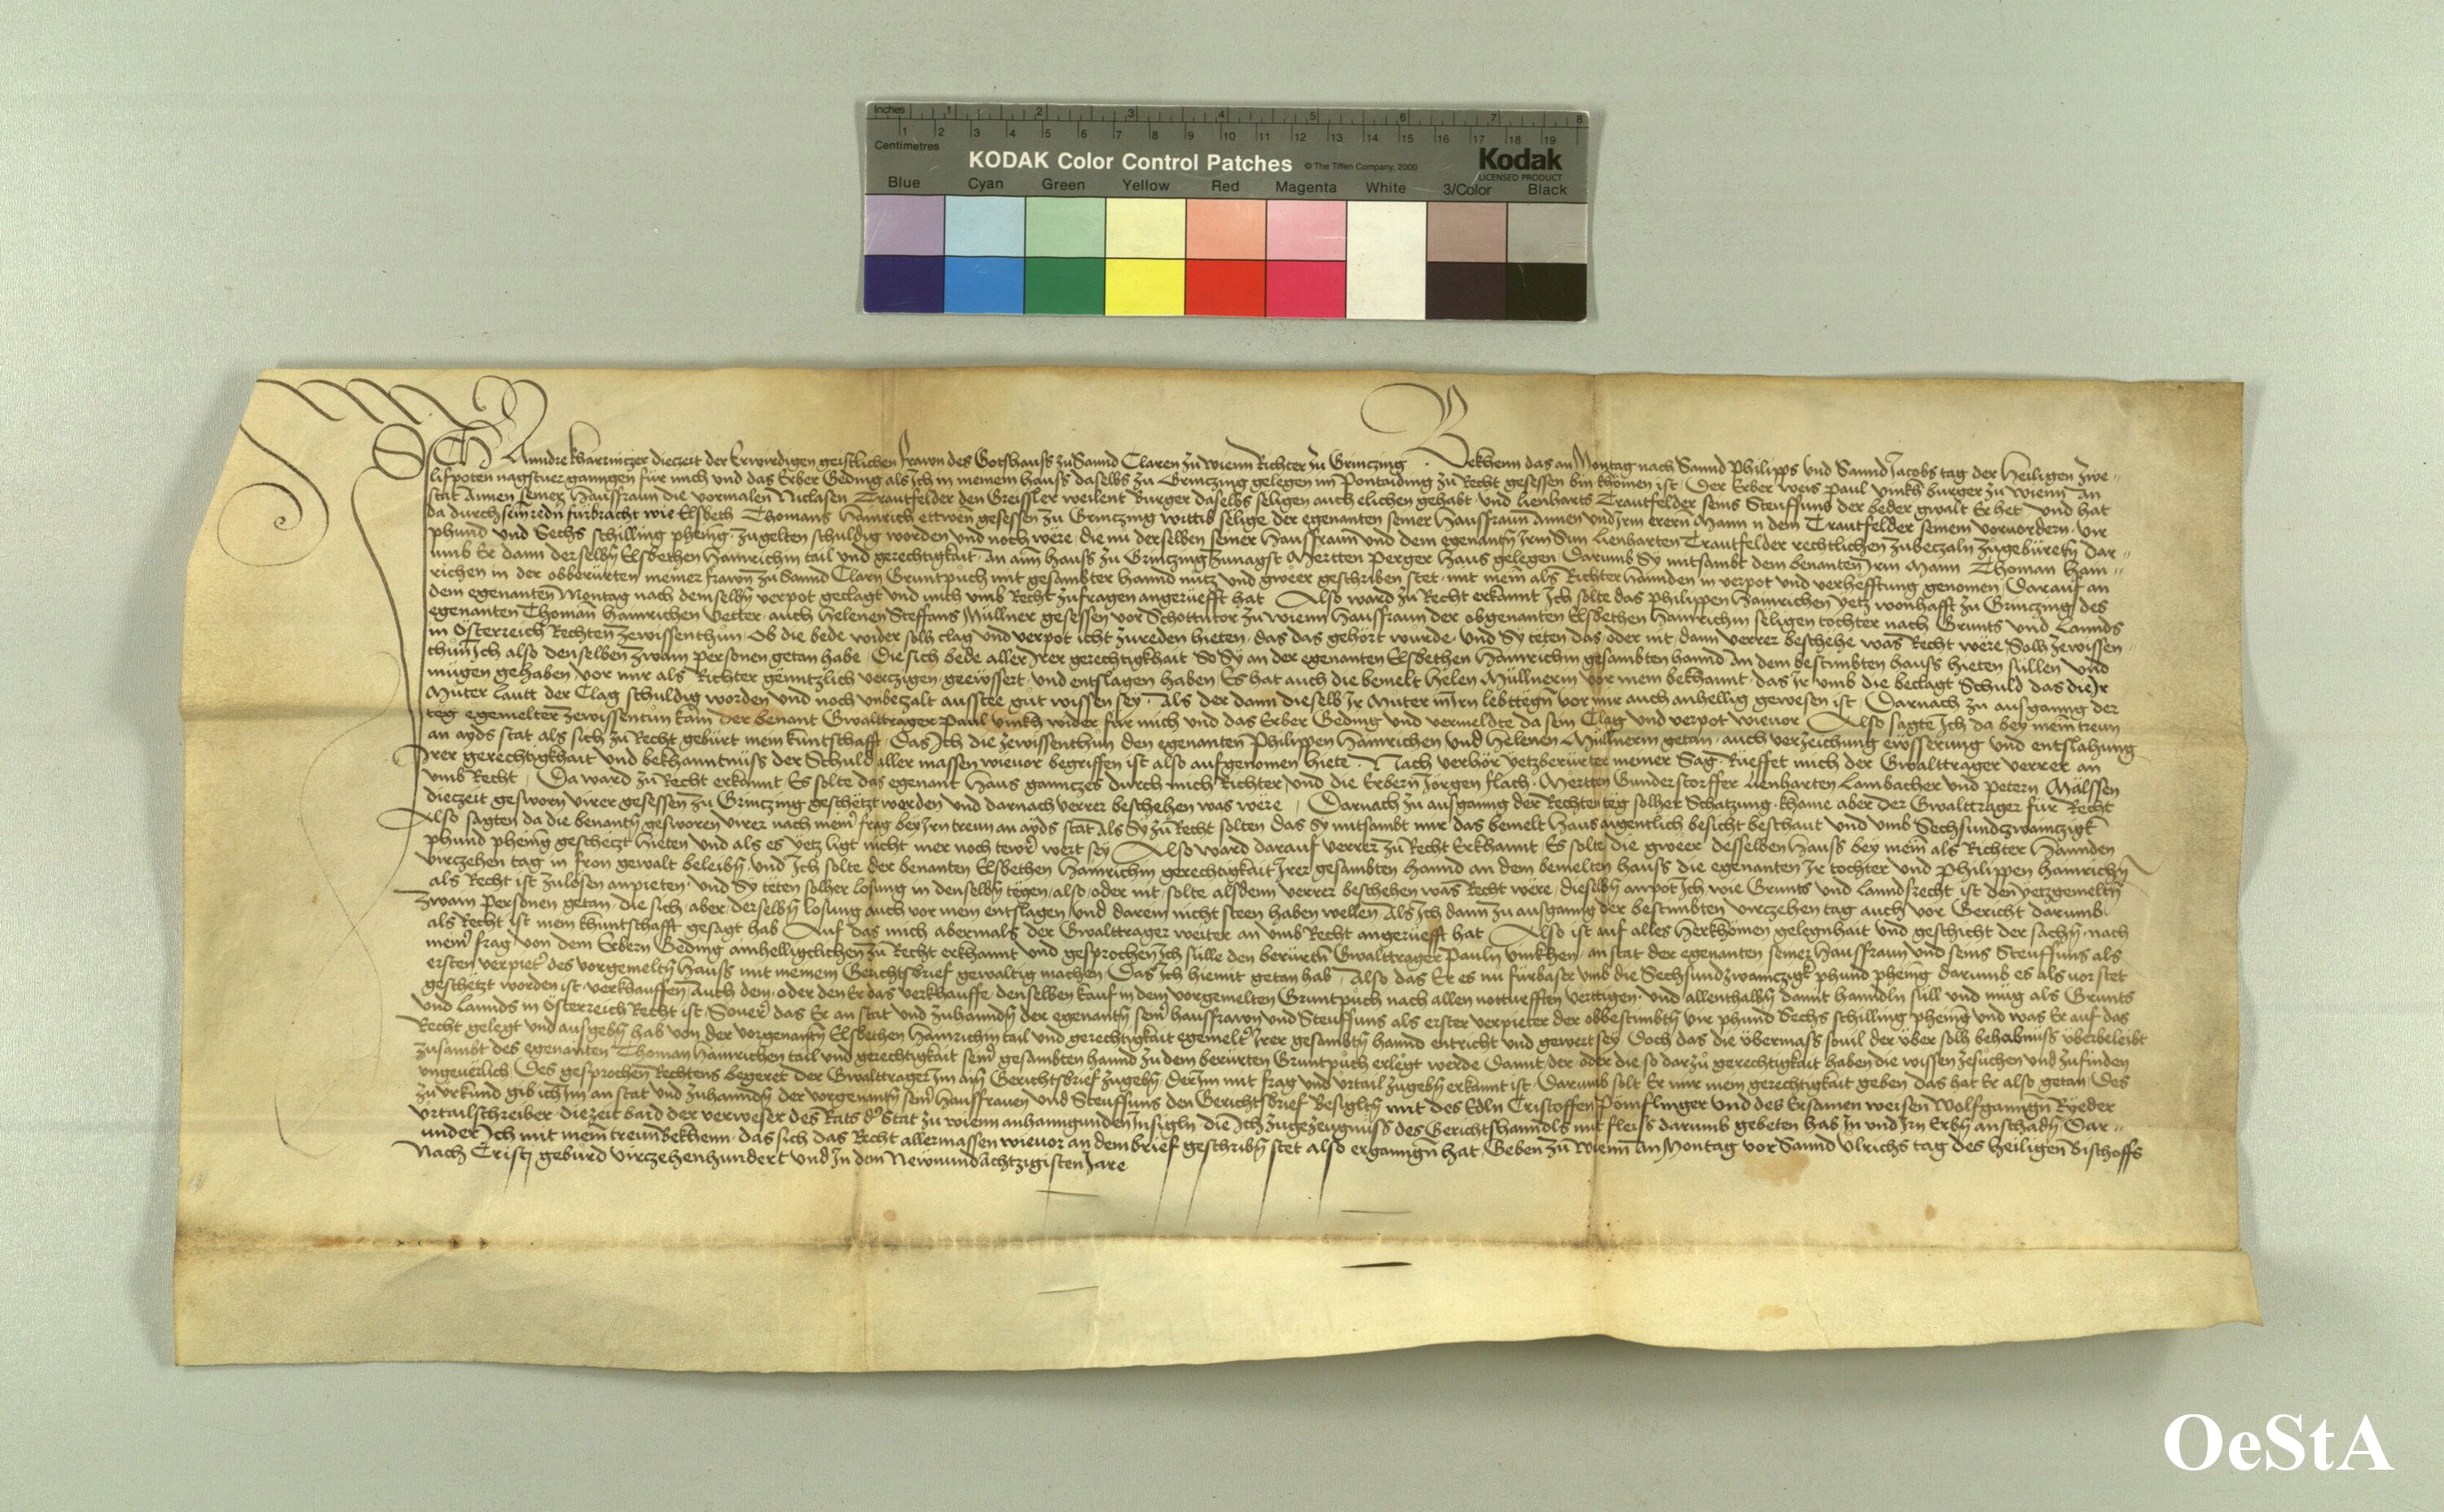 Inches 1 2 3 4 5 6 7 8
Centimetres 1 2 3 4 5 6 7 8 9 10 11 12 13 14 15 16 17 18 19
KODAK Color Control Patches © The Tiffen Company, 2000 Kodak
LICENSED PRODUCT
Blue Cyan Green Yellow Red Magenta White 3/Color Black
ICH Anndre diezeit der Erwirdigen geistlichen frawn des Gotshauss zu Sannd Claren zu wienn Richter zu Grinczing Bekhenn das an Montag nach Sannd Philipps vnd Sannd Jacobs tag der heiligen zwe-
lifpoten nagstuerganngen für mich vnd das Erber Geding als Ich in meinem hauss daselbs zu Grinczing gelegen im Pontaiding zu Recht gesessen bin khömen ist Der Erber weis Paul vinkh burger zu wienn an
stat Annen seiner Hausfraun die vormalen Niclasen Trautfelder den Greissler weilent Burger daselbs seligen auch elichen gehabt vnd Lienharts Trautfelder seins Steuffsuns der beder gwalt Er het vnd hat
da durch sein redn fürbracht wie Elsbeth Thomans Hainrich ettwen gesessen zu Grinczing wittib selige der egenanten seiner Hausfraun Annen vnd Irm erern Mann n dem Trautfelder seinem voruordern vir
phund vnd Sechs schilling phening zugelten schuldig worden vnd noch were die nu derselben seiner Hausfraun vnd dem egenantn Irm Sun Lienharten Trautfelder rechtlichen zubeczaln zugebüretn dar-
umb Er dann derselbn Elsbethen Hainrichin tail vnd gerechtigkait an aim hauss zu Grinczing zunagst Mertten Perger Haus gelegen Darumb Sy mitsambt dem benanten Irm Mann Thoman Hain-
richen in der obberürten meiner frawn zu Sannd Clarn Gruntpuch mit gesambter hannd nutz vnd gweer geschriben stet mit mein als Richter hannden in verpot vnd verhefftung genomen Darauf an
dem egenanten Montag nach demselbn verpot geclagt vnd mich vmb Recht zufragen angerüefft hat Also ward zu Recht erkannt Ich solte das Philippen Hainrichen yetz wonhafft zu Grinczing des
egenanten Thoman Hainrichen Vetter auch Helenen Steffans Müllner gesessen vor Schottntor zu wienn Hausfraun der obgenanten Elsbethen Hainrichin seligen tochter nach Grunts vnd Lannds
in Osterreich Rechten zewissenthun Ob die bede wider solh clag vnd verpot icht zureden hieten das das gehört wurde vnd Sy teten das oder nit dann verrer beschehe was Recht were Solh zewissen-
thun Ich also denselben zwain personen getan habe Die sich bede aller Irer gerechtigkhait So Sy an der egenanten Elsbethen Hainrichin gesambten hannd an dem bestimbten hauss hieten süllen vnd
mügen gehaben vor mir als Richter genntzlich verzigen geewssert vnd entslagen haben Es hat auch die bemelt Helen Müllnerin vor mein bekhannt das Ir vmb die beclagt Schuld das die Ir
Muter lautt der Clag schuldig worden vnd noch vnbetzalt ausstee gut wissen sey Als der dann dieselb Ir Muter in Irn lebttegn vor mir auch anhellig gewesen ist Darnach zu ausganng der
teg egemelter zewissentun kam der benant Gwalttrager Paul vinkh wider für mich vnd das Erber Geding vnd vermeldte da sein Clag vnd verpot wieuor Also sagte Ich da bey mein treun
an ayds stat als sich zu Recht gebürt mein kuntschafft Das Ich die zewissenthun den egenanten Philippen Hainrichen vnd Helenen Müllnerin getan auch verzeichung ewsserung vnd entslahung
Irer gerechtigkhait vnd bekhanntnuss der Schuld aller massen wieuor begriffen ist also aufgenomen hiete Nach verhör yetzberürter meiner Sag Rüeffet mich der Gwalttrager verrer an
vmb Recht Da ward zu Recht erkannt Es solte das egenant Haus ganntzes durch mich Richter vnd die Erbern Jörgen flach Mertten Gunderstorffer Lienharten Lambacher vnd Petern Mälssen
diezeit gesworn virer gesessen zu Grinczing geschetzt werden vnd darnach verrer beschehen was were Darnach zu ausganng der Rechten teg solher Schatzung khame aber der Gwalttrager für Recht
Also sagten da die benantn gesworen virer nach meiner frag bey Irn treun an ayds stat Als Sy zu Recht solten das Sy mitsambt mir das bemelt Haus aigentlich besicht beschaut vnd vmb Sechsundzwainczigk
phund phening geschetzt hieten vnd als es yetz ligt nicht mer noch tewr wert sey Also ward darauf verrer zu Recht Erkhannt Es solte die gweer desselben Hauss bey mein als Richter Hannden
virczehen tag in fron gewalt beleibn vnd Ich solte der benanten Elsbethen Hainrichin gerechtigkait Irer gesambten hannd an dem bemelten hauss die egenanten Ir tochter vnd Philippen Hainrichn
als Recht ist zulösen anpieten vnd Sy teten solher losung in denselbn tegen also oder nit solte alsdenn verrer beschehen was Recht were dieselbn anpot Ich wie Grunts vnd Lanndsrecht ist den yetzgemeltn
zwain Personen getan die sich aber derselbn losung auch vor mein entslagen vnd darein nicht steen haben wellen Als Ich dann zu ausganng der bestimbten virczehen tag auch vor Gericht darumb
als Recht ist mein khuntschafft gesagt hab Auf das mich abermals der Gwalttrager weiter an vmb Recht angerüefft hat Also ist auf alles herkhömen gelegnhait vnd geschicht der sachn nach
meiner frag von dem Erbern Geding ainhelligclichen zu Recht erkhannt vnd gesprochen Ich sülle den berürtn Gwalttrager Pauln vinkhen an stat der egenanten seiner Hausfraun vnd seins Steuffsuns als
ersten verpieter des vorgemeltn Hauss mit meinem Gerichtsbrief gewaltig machen Das Ich hiemit getan hab Also das Er es nu fürbaser vmb die Sechsundzwainczigk phund phening darumb es als uor stet
geschetzt worden ist verkhauffen Auch dem oder den Er das verkhauffe denselben kauf in dem vorgemelten Gruntpuch nach allen notturfften verttigen vnd allenthalbn damit hanndln süll vnd mug als Grunts
vnd Lannds in Osterreich Recht ist Souer das Er an stat vnd zuhanndn der egenantn seiner hausfrawn vnd Steuffsuns als erster verpieter der obbestimbtn vir phund Sechs schilling phening vnd was Er auf das
Recht gelegt vnd ausgebn hab von der vorgenantn Elsbethen Hainrichin tail vnd gerechtigkait egemelter Irer gesambtn hannd entricht vnd gewert sey Doch das die übermass souil der über solh behabnuss überbeleibt
zusambt des egenanten Thoman Hainrichen tail vnd gerechtigkait seiner gesambten hannd zu dem berürten Gruntpuch erlegt werde Damit der oder die so darzu gerechtigkait haben die wissen zesuchen vnd zufinden
vngeuerlich Des gesprochen Rechtens begeret der Gwalttrager Im ain Gerichtsbrief zugebn Der Im mit frag vnd vrtail zugebn erkannt ist Darumb solt Er mir mein gerechtigkait geben das hat Er also getan Des
zu vrkund gib ich Im an stat vnd zuhanndn der vorgenantn seiner Hausfrauen vnd Steuffsuns den Gerichtsbrief Besigltn mit des Edln Cristoffen Pömflinger vnd des Ersamen weisen Wolfganngn Ryeder
vrtailschreiber diezeit baid der verweser des Rats der Stat zu wienn anhanngunden Insigln die Ich zu gezeugnuss des Gerichtshanndls mit fleiss darumb gebeten hab In vnd Irn Erbn an schadn Dar-
under Ich mit mein treun bekhenn das sich das Recht allermassen wieuor an dem brief geschribn stet also erganngn hat Geben zu wienn an Montag vor Sannd Vlrichs tag des heiligen Bischoffs
Nach Cristj geburd virczehenhundert vnd In dem Newnundachtzigisten Jare
OeStA